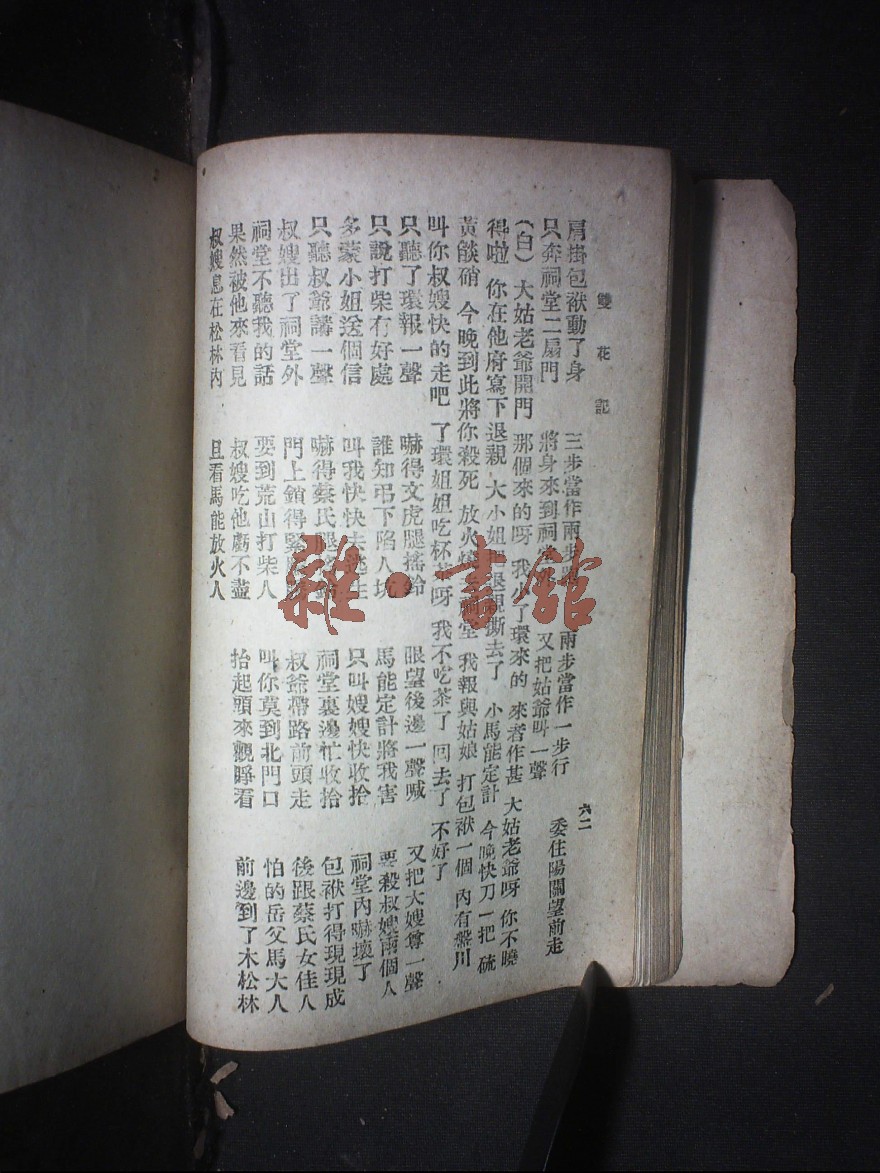 雙花記
六二
肩掛包袱動了身 三步當作兩步 兩步當作一步行 委住陽關望前走
只奔祠堂二扇門 將身來到祠 又把姑爺叫一聲
(白)大姑老爺開門 那個來的呀 我 了環來的 來者作甚 大姑老爺呀 你不曉
得啦 你在他府寫下退親 大小姐 退 撕去了 小馬能定計 今晚快刀一把 硫
黃燄硝 今晚到此將你殺死 放火 祠堂 我報與姑娘 打包袱一個 內有盤川
叫你叔嫂快的走吧 了環姐姐吃杯茶呀 我不吃茶了 回去了 不好了
只聽了環報一聲 嚇得文虎腿搖鈴 眼望後邊一聲喊 又把大嫂尊一聲
只說打柴有好處 誰知弔下陷人坑 馬能定計將我害 要殺叔嫂兩個人
多蒙小姐送個信 叫我快快去逃生 只叫嫂嫂快收拾 祠堂內嚇壞了
只聽叔爺講一聲 嚇得蔡氏腿 祠堂裏邊忙收拾 包袱打得現現成
叔嫂出了祠堂外 門上鎖得緊 叔爺帶路前頭走 後跟蔡氏女佳人
祠堂不聽我的話 要到荒山打柴人 叫你莫到北門口 怕的岳父馬大人
果然被他來看見 叔嫂吃他虧不盡 抬起頭來觀睜看 前邊到了木松林
叔嫂息在松林內 且看馬能放火人
雜·書館